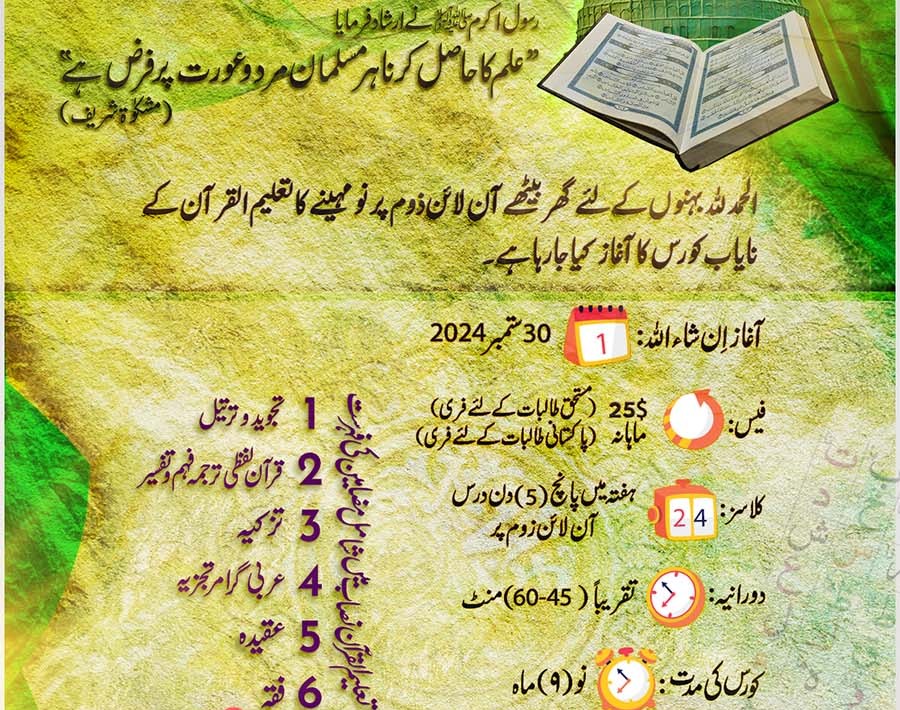 رسول اکرم ﷺ نے ارشاد فرمایا
"علم کا حاصل کرنا ہر مسلمان مرد و عورت پر فرض ہے"
(مشکوٰۃ شریف)
الحمدللہ بہنوں کے لئے گھر بیٹھے آن لائن ذوم پر نو مہینے کا تعلیم القرآن کے
نایاب کورس کا آغاز کیا جا رہا ہے۔
آغاز اِن شاء اللہ: 1 30 ستمبر 2024
فیس: 25$ ماہانہ
(مستحق طالبات کے لئے فری)
(پاکستانی طالبات کے لئے فری)
کلاسز: 24 ہفتہ میں پانچ (5) دن درس
آن لائن زوم پر
دورانیہ: تقریباً (45-60) منٹ
کورس کی مدت: نو (۹) ماہ
تعلیم القرآن نصاب میں شامل مضامین کی فہرست
1 تجوید و ترتیل
2 قرآن لفظی ترجمہ فہم و تفسیر
3 تزکیہ
4 عربی گرامر تجزیہ
5 عقیدہ
6 فقہ